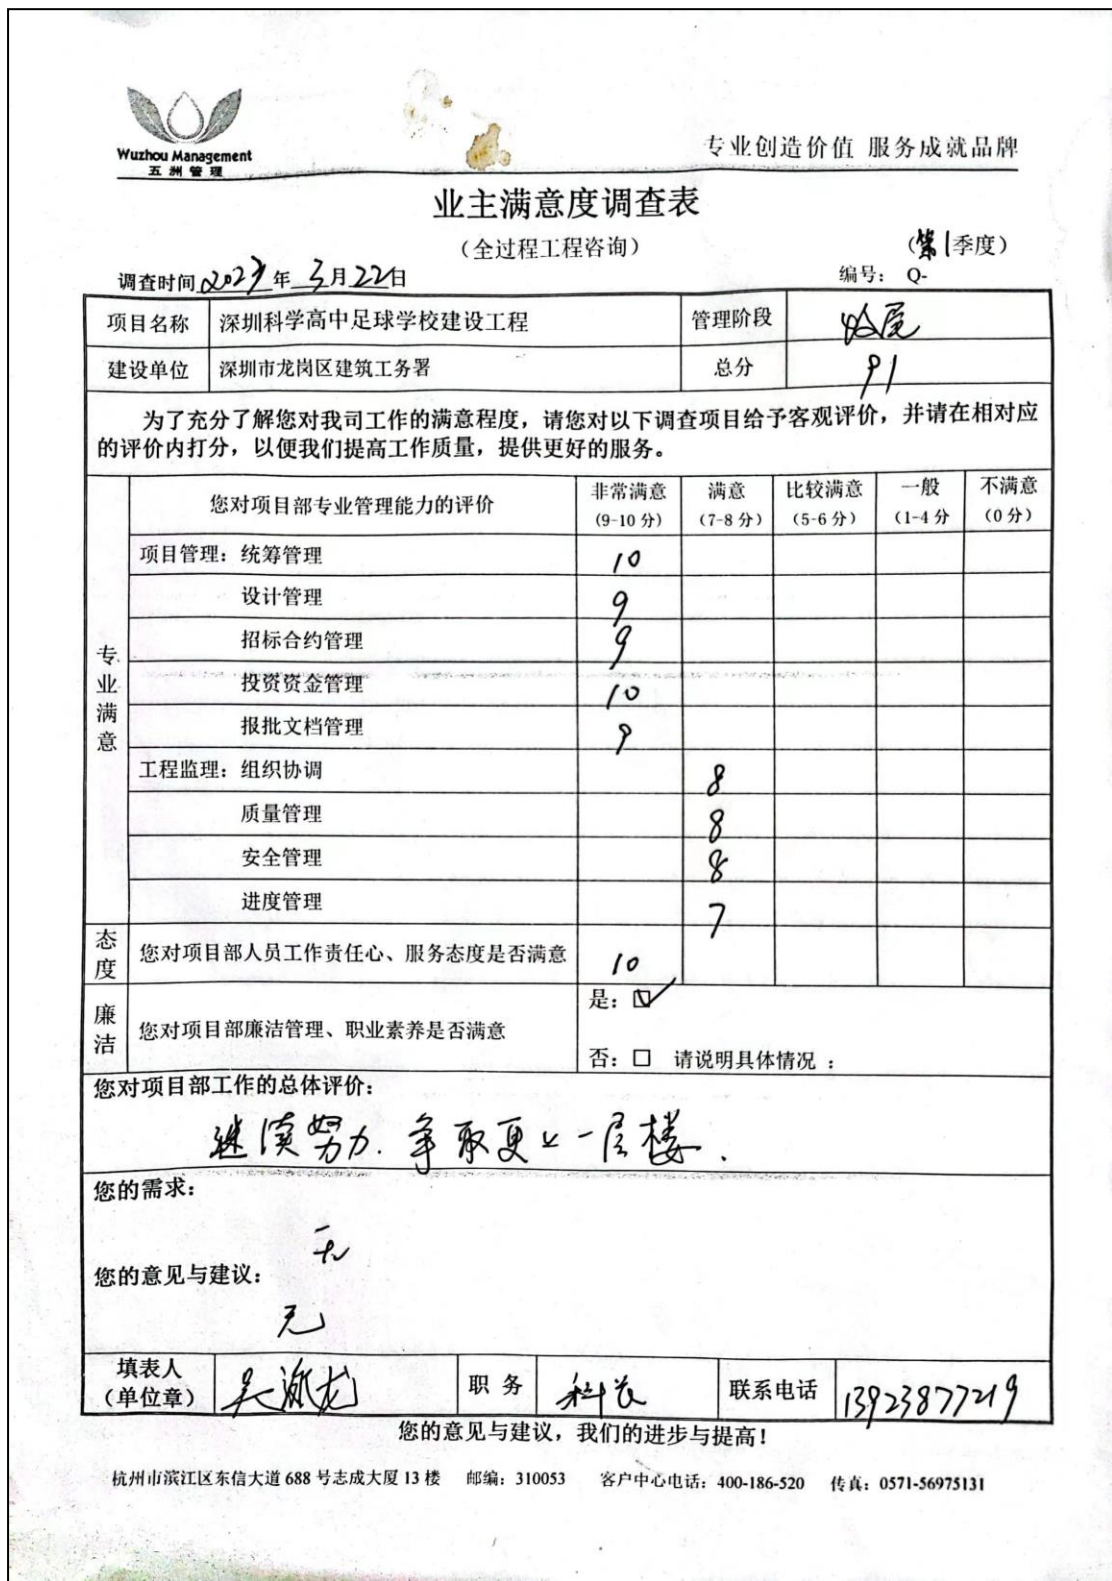 Wuzhou Management
五洲管理
专业创造价值 服务成就品牌
业主满意度调查表
(全过程工程咨询)
(第1季度)
调查时间2023年3月22日
编号: Q-
项目名称 深圳科学高中足球学校建设工程 管理阶段 收尾
建设单位 深圳市龙岗区建筑工务署 总分 91
为了充分了解您对我司工作的满意程度,请您对以下调查项目给予客观评价,并请在相对应
的评价内打分,以便我们提高工作质量,提供更好的服务。
专业满意
您对项目部专业管理能力的评价 非常满意 满意 比较满意 一般 不满意
(9-10 分) (7-8 分) (5-6 分) (1-4 分 (0 分)
项目管理:统筹管理 10
设计管理 9
招标合约管理 9
投资资金管理 10
报批文档管理 9
工程监理:组织协调 8
质量管理 8
安全管理 8
进度管理 7
态度 您对项目部人员工作责任心、服务态度是否满意 10
廉洁 您对项目部廉洁管理、职业素养是否满意 是:☑
否:□ 请说明具体情况 :
您对项目部工作的总体评价:
继续努力.争取更上一层楼.
您的需求:
无
您的意见与建议:
无
填表人
(单位章) 职务 科长 联系电话 13923877219
您的意见与建议,我们的进步与提高!
杭州市滨江区东信大道 688 号志成大厦 13 楼 邮编:310053 客户中心电话:400-186-520 传真:0571-56975131